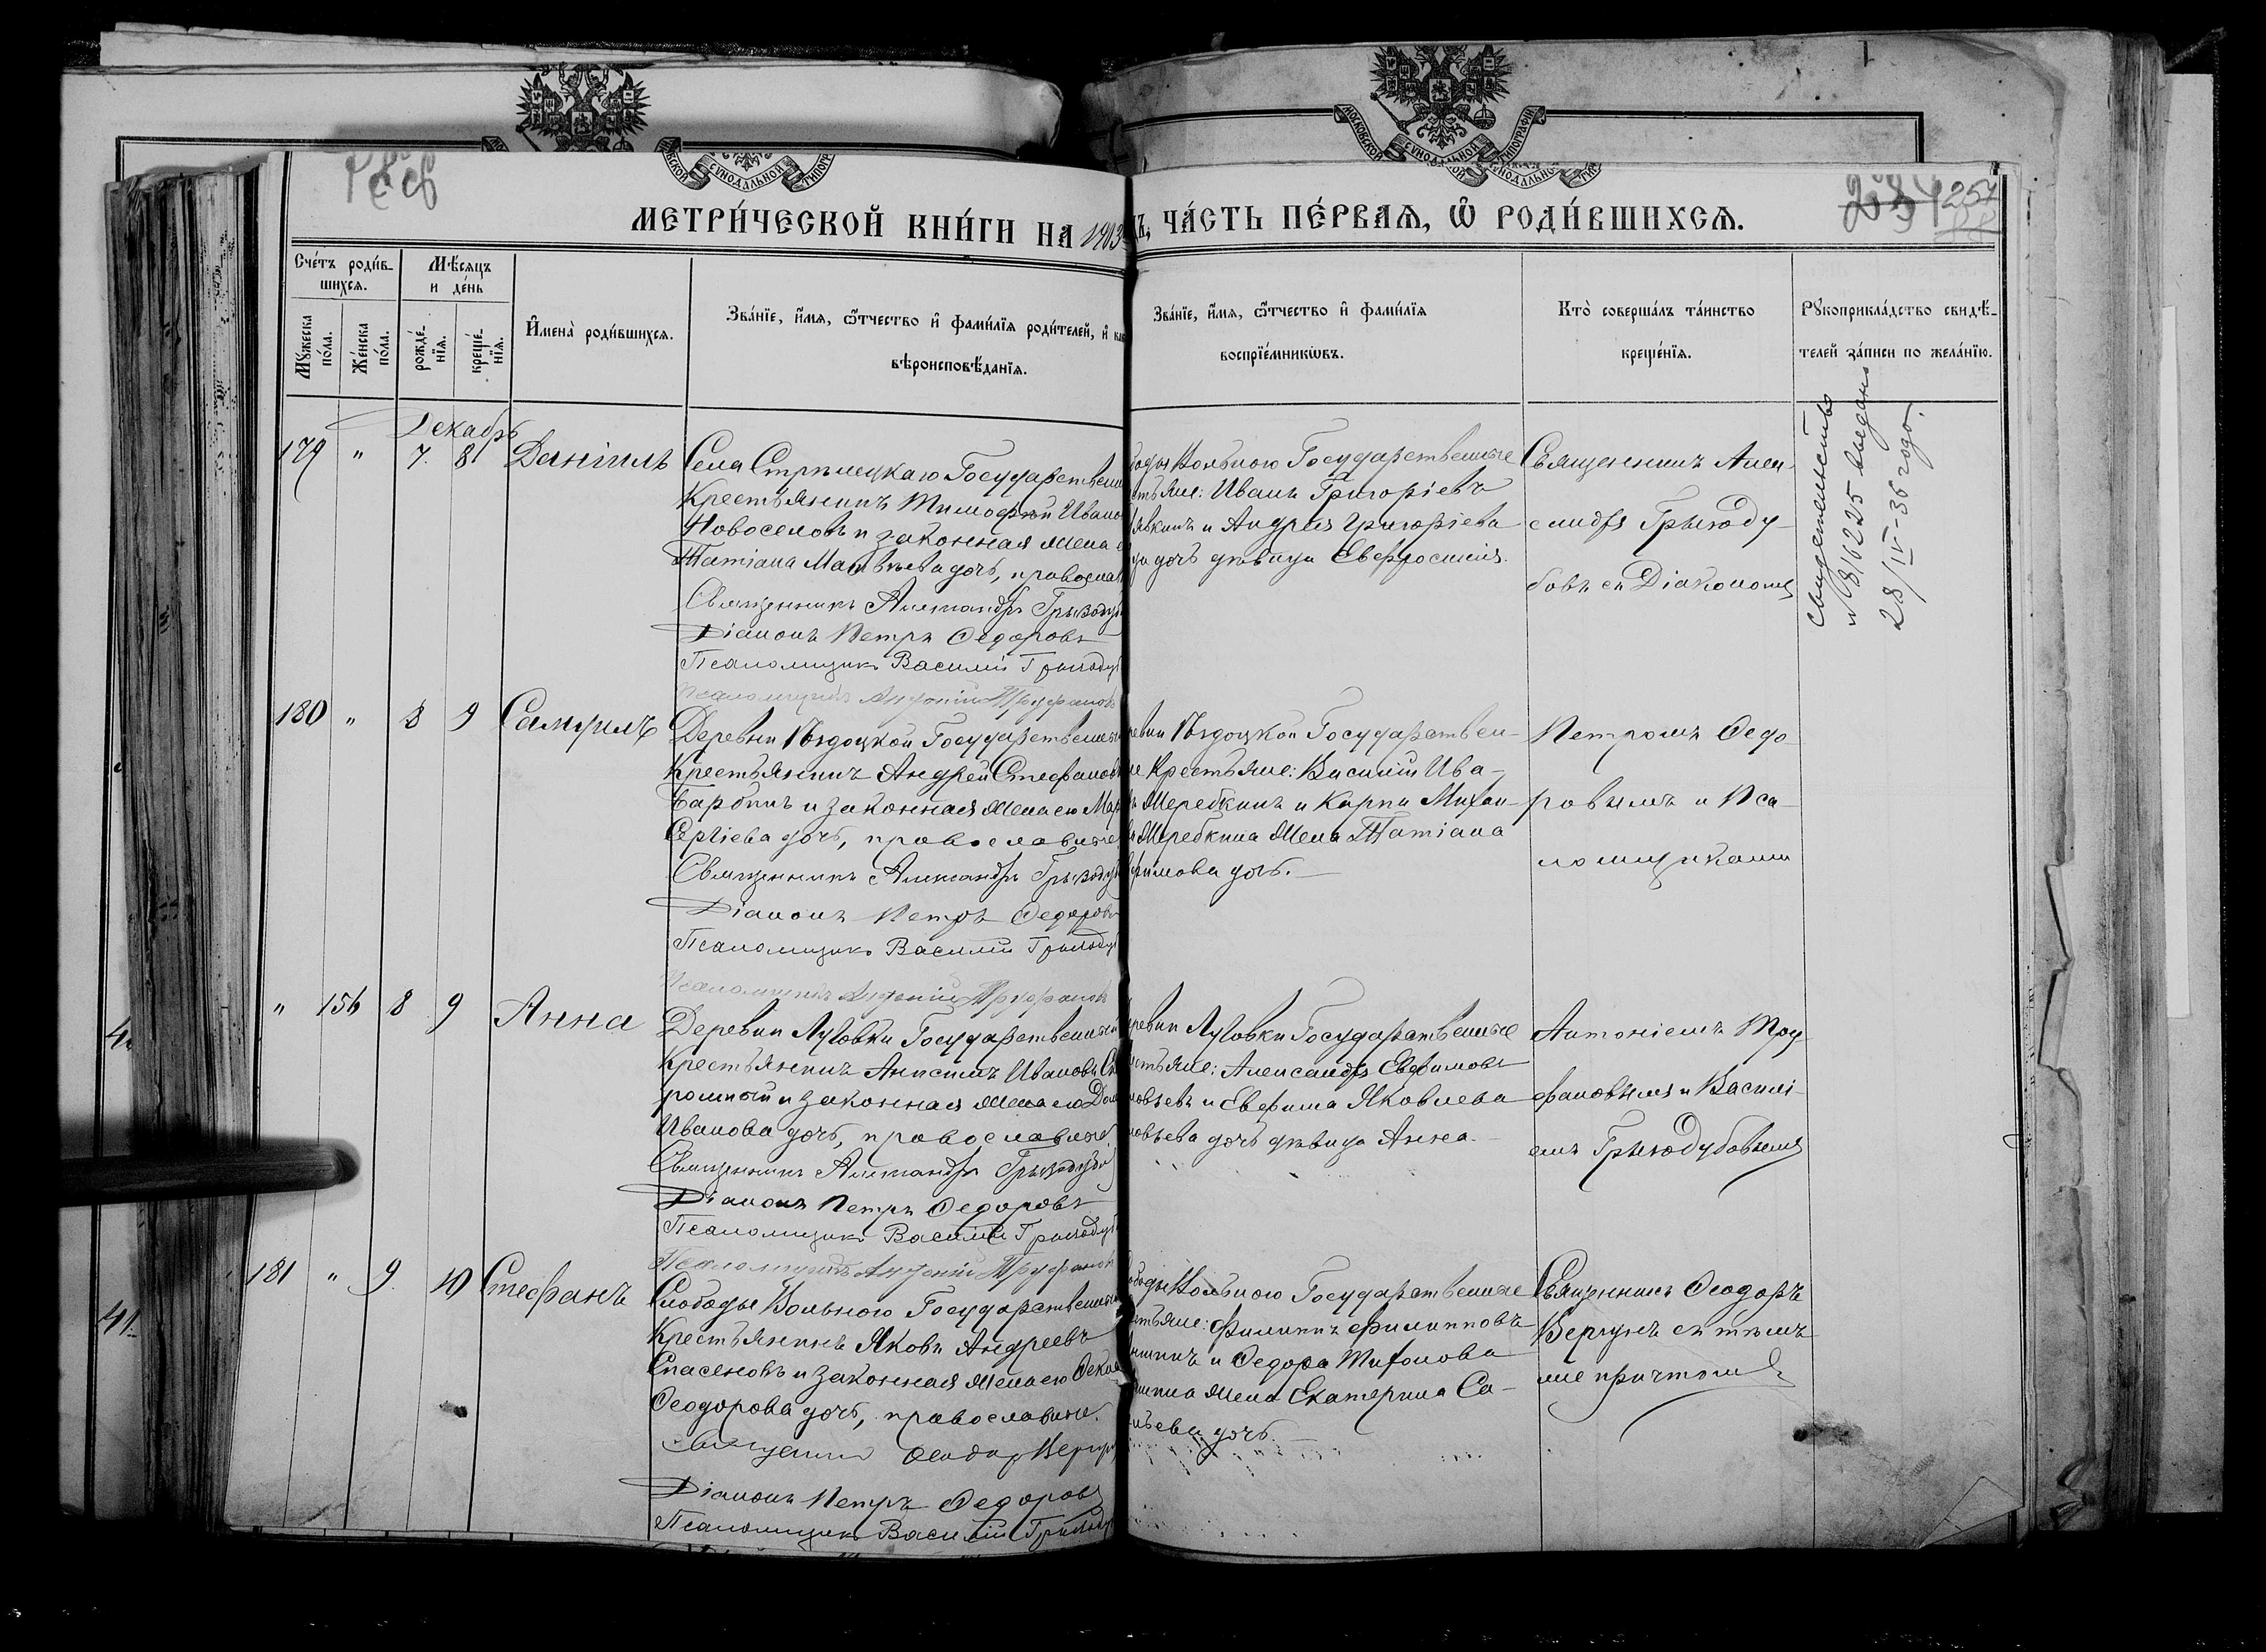 МЕТРИ́ЧЕСКОЙ КНИ́ГИ НА 1903
Ъ, ЧА́СТЬ ПЕ́РВАЯ, Ѡ РОДИ́ВШИХСЯ.
251
Сче́тъ роди́в-
шихся.
Мѣ́сяцъ
и де́нь
Мꙋ́жеска
по́ла.
Же́нска
по́ла.
рожде́-
нїя.
креще́-
нїя.
И҆мена̀ роди́вшихся.
Зва́нїе, и҆́мя, ѻ҆́тчество и҆ фами́лїя роди́телей, и҆
вѣроисповѣ́данїя.
Зва́нїе, и҆́мя, ѻ҆́тчество и҆ фами́лїя
воспрїе́мникѡвъ.
Кто̀ соверша́лъ та́инство
креще́нїя.
Рꙋкоприкла́дство свидѣ́-
телей за́писи по жела́нїю.
Декабрь
179 " 7. 8 Даніилъ
Села Стрѣлецкаго Государствен
Крестьянинъ Тимофей Ивано
Новоселовъ и законная жена е
Татіана Матвѣева дочь, правосла
Священникъ Александръ Грызоду
Діаконъ Петръ Ѳедоровъ
Псаломщикъ Василій Грызоду
Псаломщикъ Антоній Труфановъ
боды Вольного Государственные
стьяне: Иванъ Григоріевъ
авкинъ и Андрея Григоріева
дочь дѣвица Евфросинія.
Священникъ Алек-
сандръ Грызоду-
бовъ съ Діакономъ
свидетельство
№ 81625 выдано
28/IV-36 года.
180 " 8 9 Самуилъ
Деревни Ѣздоцкой Государственный
Крестьянинъ Андрей Стефановъ
Барбинъ и законная жена его Мар
Сергіева дочь, православные
Священникъ Александръ Грызодуб
Діаконъ Петръ Ѳедоровъ
Псаломщикъ Василій Грызодуб
Псаломщикъ Антоній Труфановъ
ревни Ѣздоцкой Государствен-
ые Крестьяне: Василій Ива-
ъ Жеребкинъ и Карпа Михаи-
Жеребкина жена Татіана
фимова дочь.
Петромъ Ѳедо-
ровымъ и Пса-
ломщиками
" 156 8 9 Анна
Деревни Луговки Государственный
Крестьянинъ Анисимъ Ивановъ Ск
ромный и законная жена его Дом
Иванова дочь, православные.
Священникъ Александръ Грызодуб
Діаконъ Петръ Ѳедоровъ
Псаломщикъ Василій Грызодуб
Псаломщикъ Антоній Труфанов
ревни Луговки Государственные
стьяне: Александръ Евфимовъ
овьевъ и Евфима Яковлева
овьева дочь дѣвица Анна.
Антоніемъ Тру-
фановымъ и Василі-
емъ Грызодубовымъ
181 " 9. 10 Стефанъ
Слободы Вольного Государственный
Крестьянинъ Яковъ Андреевъ
Спасеновъ и законная жена его Ѳекла
Ѳеодорова дочь, православные.
Священникъ Ѳеодоръ Вергун
Діаконъ Петръ Ѳедоровъ
Псаломщикъ Василій Грызодуб
ободы Вольного Государственные
стьяне: Филиппъ Филипповъ
и Ѳедора Тихонова
жена Екатерина Са-
ьева дочь.
Священникъ Ѳеодоръ
Вергунъ съ тѣмъ
же причтомъ
41